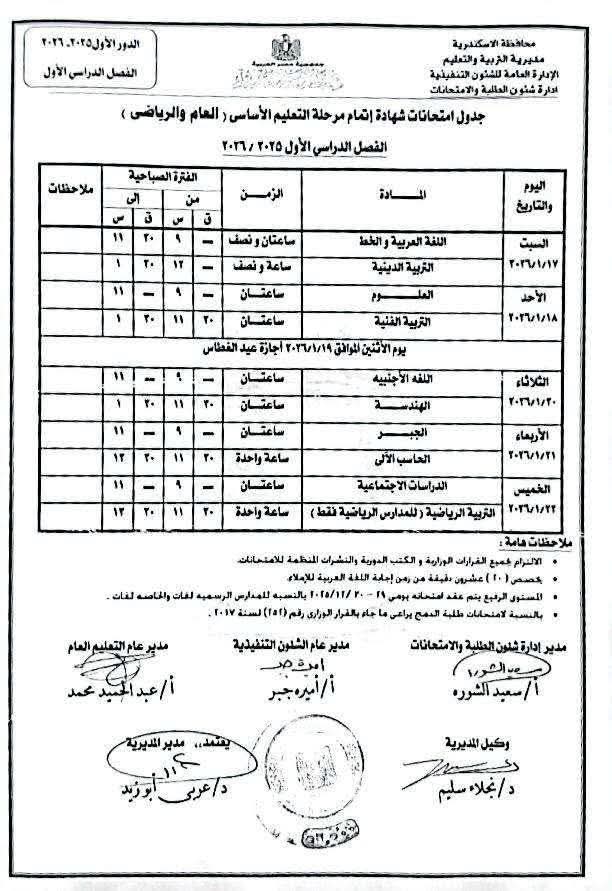 محافظة الاسكندرية
مديرية التربية والتعليم
الإدارة العامة للشئون التنفيذية
ادارة شئون الطلبة والامتحانات
جمهورية مصر العربية
الدور الأول ٢٠٢٥-٢٠٢٦
الفصل الدراسي الأول
جدول امتحانات شهادة إتمام مرحلة التعليم الأساسى ( العام والرياضى )
الفصل الدراسي الأول ٢٠٢٥ / ٢٠٢٦
اليوم والتاريخ المـــادة الزمن الفترة الصباحية ملاحظات
من إلى
ق س ق س
السبت ٢٠٢٦/١/١٧ اللغة العربية و الخط ساعتان و نصف — ٩ ٣٠ ١١
التربية الدينية ساعة و نصف — ١٢ ٣٠ ١
الأحد ٢٠٢٦/١/١٨ العلـــــوم ساعتــان — ٩ — ١١
التربية الفنية ساعتــان ٣٠ ١١ ٣٠ ١
يوم الأثنين الموافق ٢٠٢٦/١/١٩ أجازة عيد الغطاس
الثلاثاء ٢٠٢٦/١/٢٠ اللغه الأجنبيه ساعتــان — ٩ — ١١
الهندســـة ساعتــان ٣٠ ١١ ٣٠ ١
الأربعاء ٢٠٢٦/١/٢١ الجبـــر ساعتــان — ٩ — ١١
الحاسب الآلى ساعة واحدة ٣٠ ١١ ٣٠ ١٢
الخميس ٢٠٢٦/١/٢٢ الدراسات الاجتماعية ساعتــان — ٩ — ١١
التربية الرياضية ( للمدارس الرياضية فقط ) ساعة واحدة ٣٠ ١١ ٣٠ ١٢
ملاحظات هامة :
• الالتزام بجميع القرارات الوزارية و الكتب الدورية والنشرات المنظمة للامتحانات.
• يخصص (٢٠) عشرون دقيقة من زمن إجابة اللغة العربية للإملاء.
• المستوى الرفيع يتم عقد امتحانه يومى ٢٩ - ٣٠ / ٢٠٢٥/١٢ بالنسبه للمدارس الرسميه لغات والخاصه لغات .
• بالنسبة لامتحانات طلبة الدمج يراعى ما جاء بالقرار الوزارى رقم (٢٥٢) لسنة ٢٠١٧ .
مدير إدارة شئون الطلبة والامتحانات مدير عام الشئون التنفيذية مدير عام التعليم العام
أ/ سعيد الشوره أ/ أميره جبر أ/ عبد الحميد محمد
وكيل المديرية يعتمد،، مدير المديرية
د/ نجلاء سليم د/ عربى أبو زيد